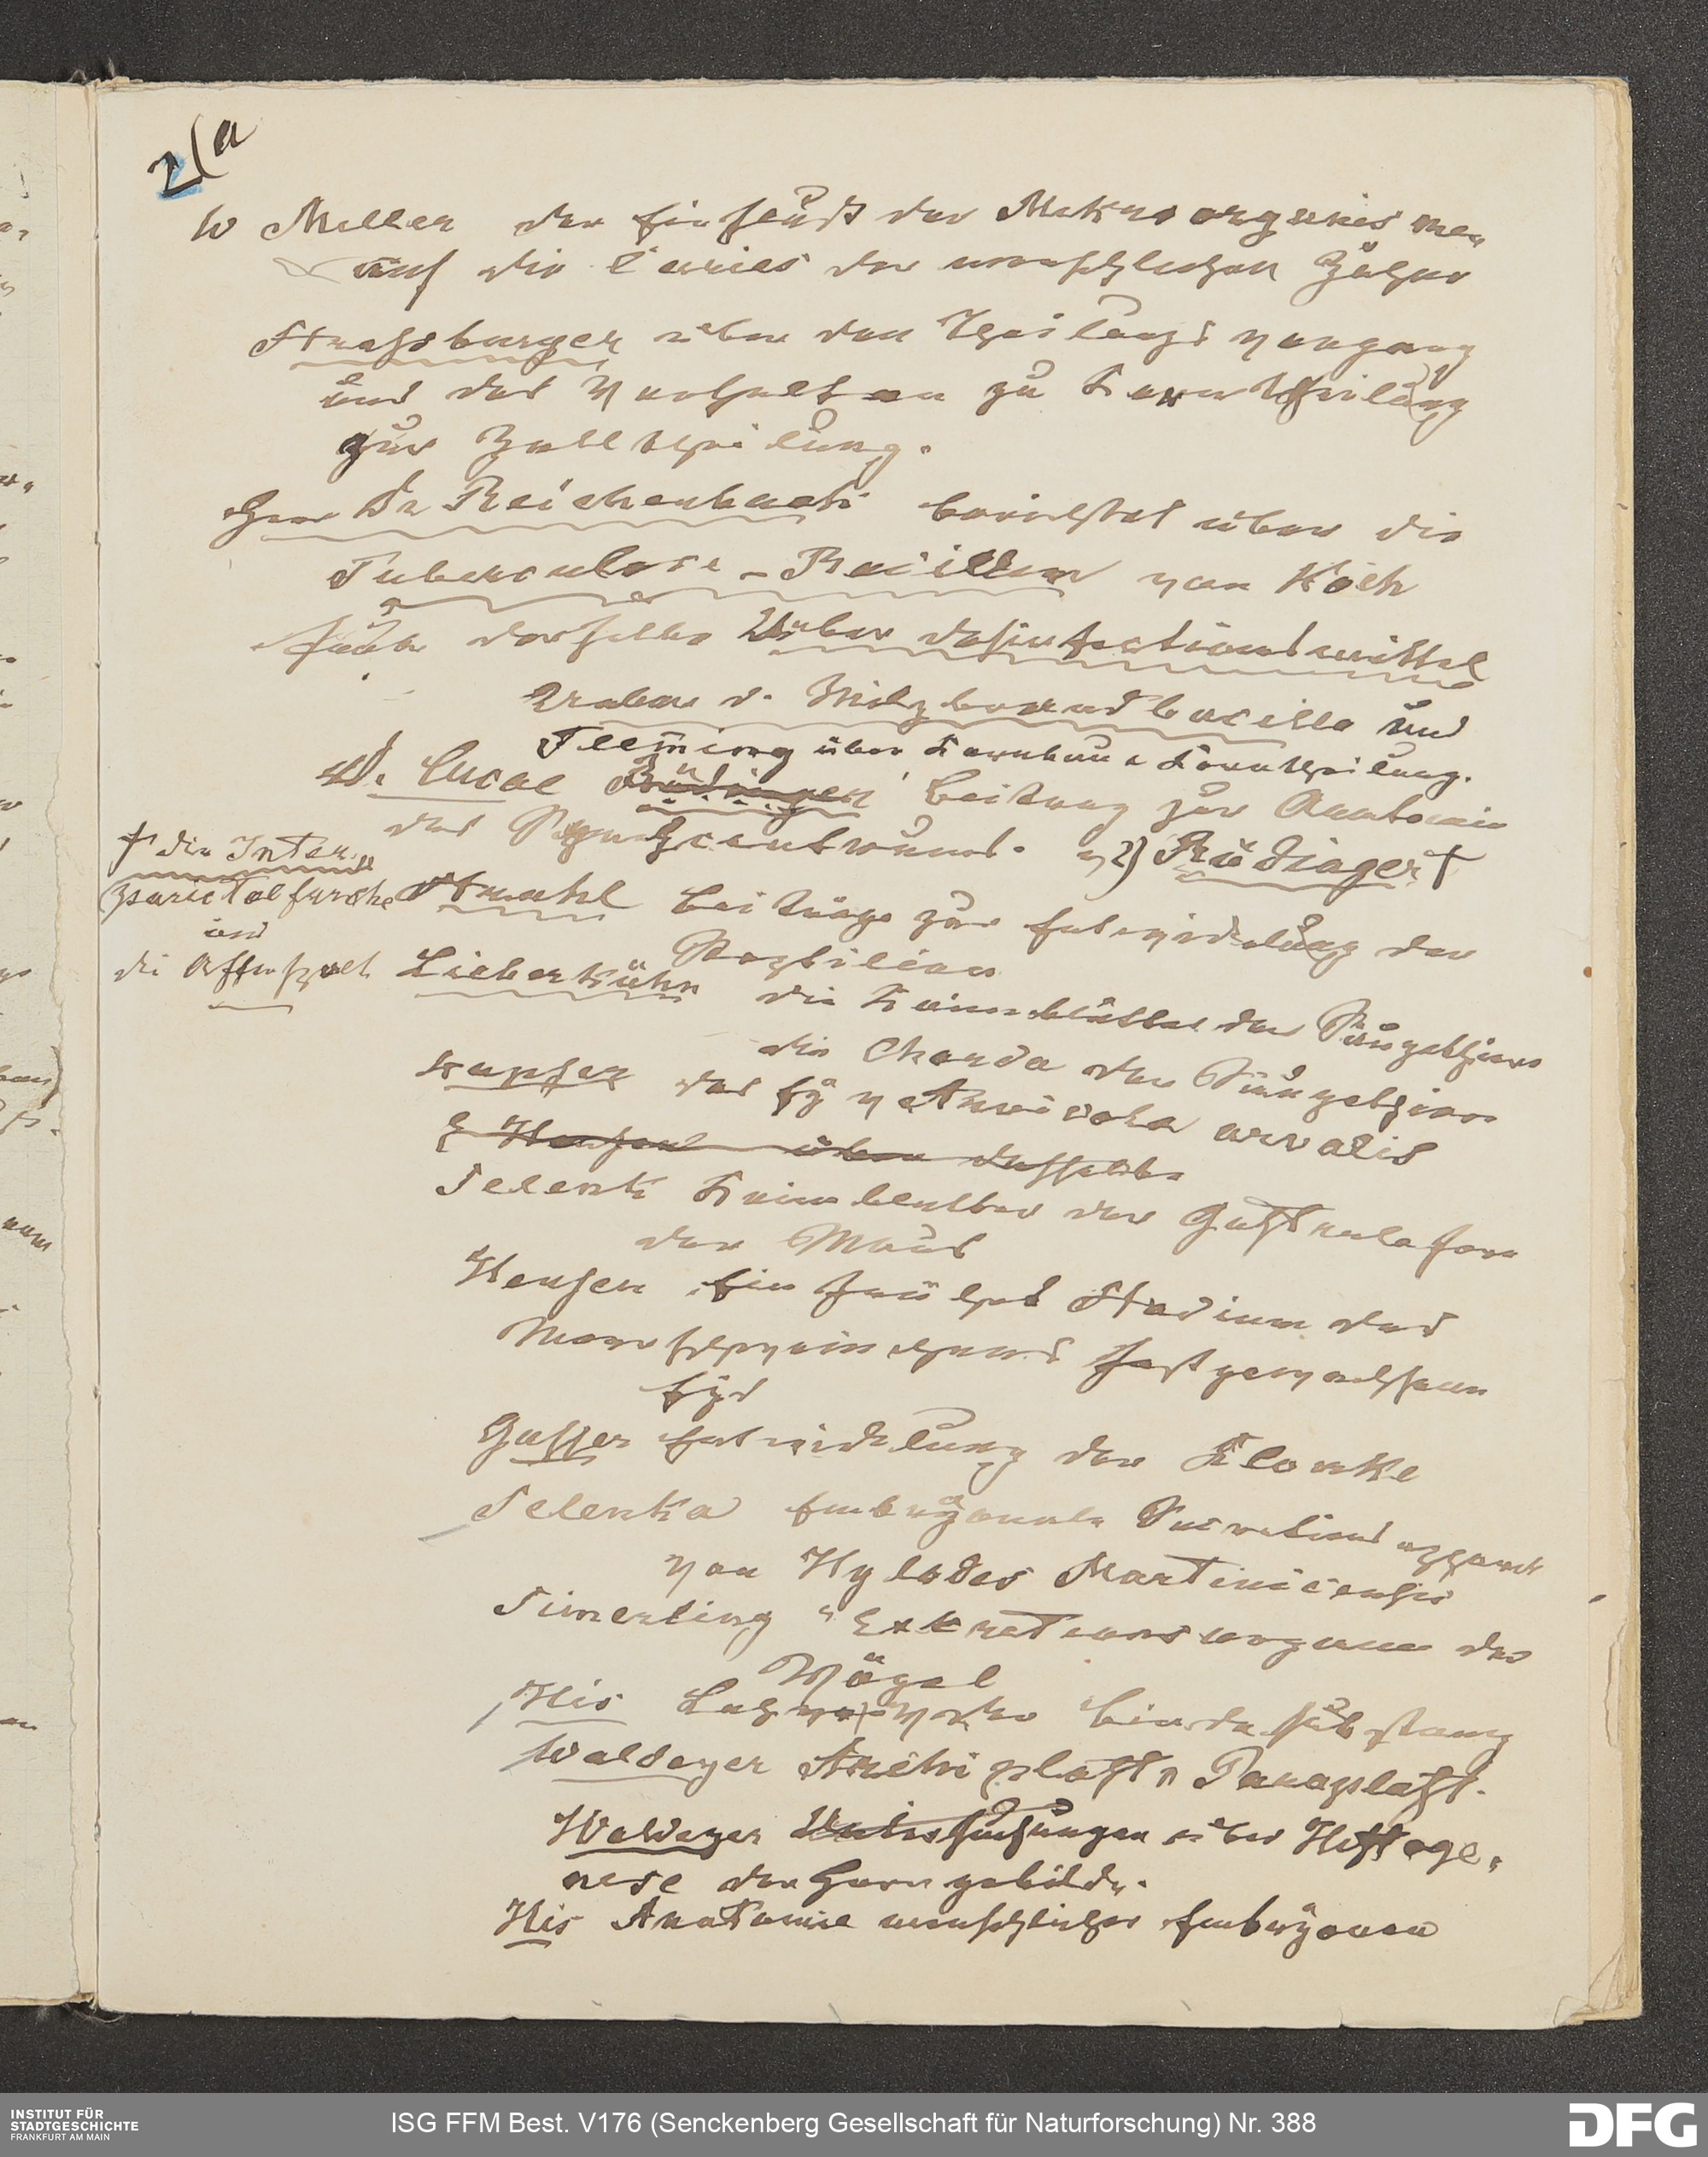 2/a
W Meller der Einfluß der Mikroorganismen
auf die Caries der menschlichen Zähne
Strassburger über den Theilungsvorgang
und das Verhalten zu Kerntheilung
zur Zelltheilung.
Herr Dr Reichenbach berichtet über die
Tuberculose-Bacillen von Koch
derselbe Ueber desinfectionsmittel
d. Milzbrandbacille und
Fleming über Kernbau u Kerntheilung.
Dr. Lucae Rüdinger Beitrag zur Anatomie
des Sprachcentrums. v 2) Rüdinger †
† die Inter„
parietalfurche
und
die Affenspalte
Strahl Beiträge zur Entwickelung der
Reptilien
Lieberkühn die Keimblätter der Säugethiere
die Chorda der Säugethiere
Kupfer das Ei v Arvicola arvalis
& Hensen über dasselbe
Selenk Keimblätter der Gastrulaform
der Maus
Hensen Ein frühes Stadium des
Meerschweinchens festgewachsenen
Eies
Gasser Entwickelung der Kloake
Selenka Embryonale Excretions apparat
von Hylodes Martinicensis
Simerling " Exkretionsorgane der
Vögel
His Lehre v der Bindesubstanz
Waldeyer Archiplast u Paraplast.
Waldeyer Untersuchungen über Histoge„
nese der Horngebilde.
His Anatomie menschlicher Embryonen
INSTITUT FÜR
STADTGESCHICHTE
FRANKFURT AM MAIN
ISG FFM Best. V176 (Senckenberg Gesellschaft für Naturforschung) Nr. 388
DFG